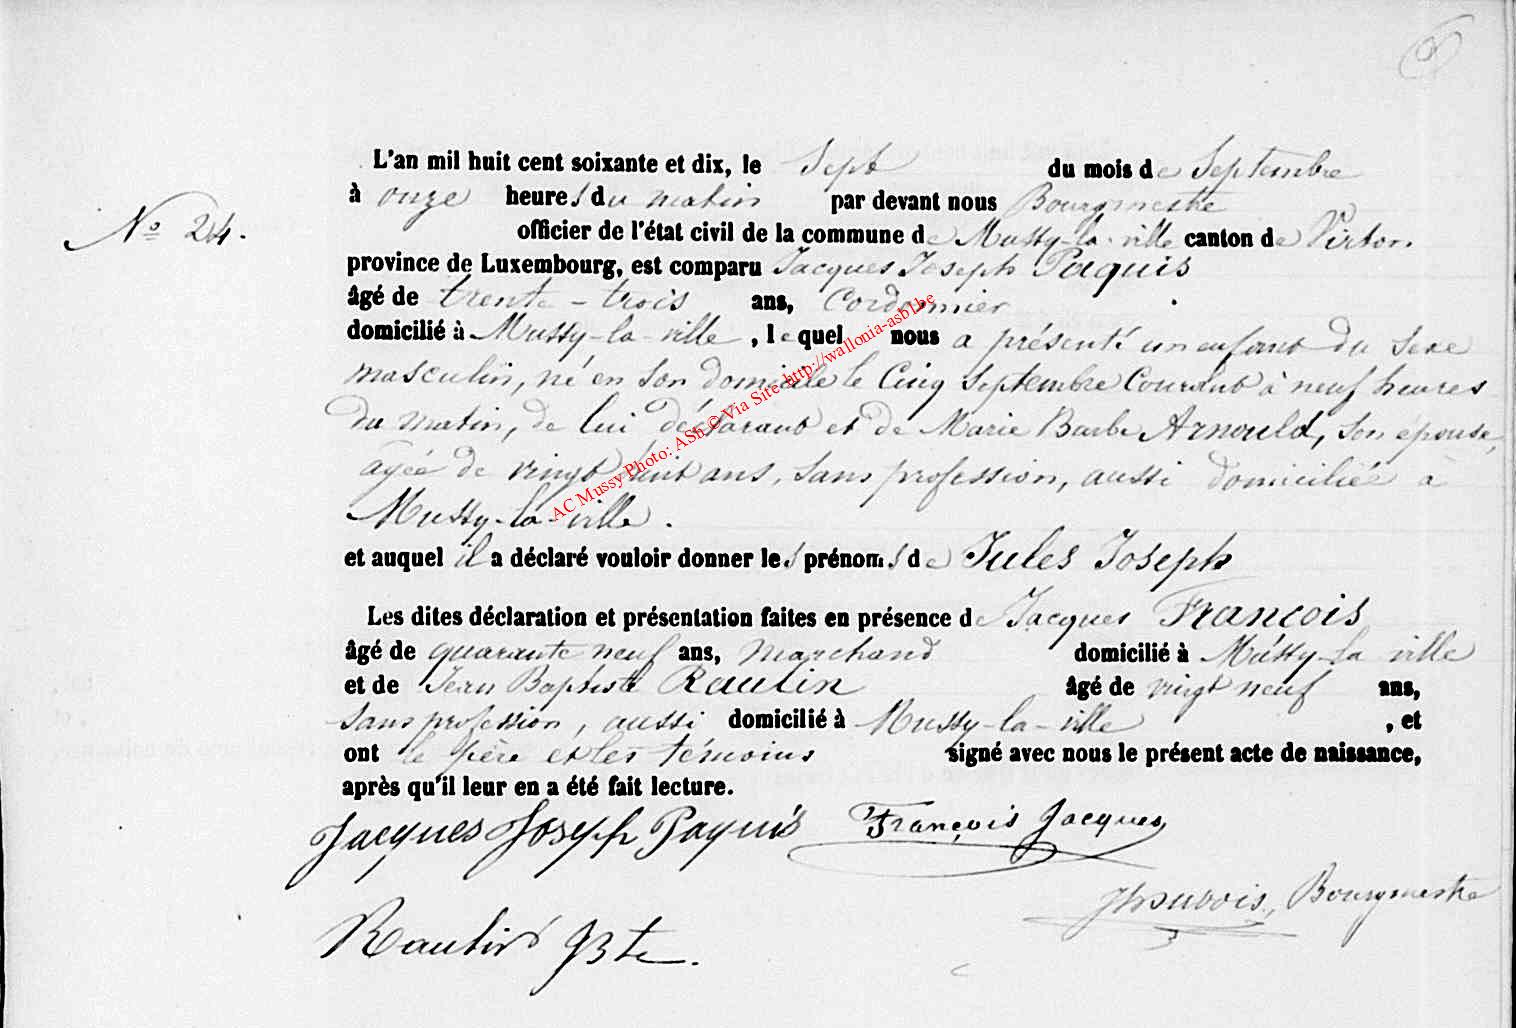 L'an mil huit cent soixante et dix, le Sept du mois de Septembre
N° 24.
à onze heures du matin par devant nous Bourgmestre
officier de l'état civil de la commune de Mussy-la-ville canton de Virton
province de Luxembourg, est comparu Jacques Joseph Paquis
âgé de trente-trois ans, Cordonnier
domicilié à Mussy-la-ville, lequel nous a présenté un enfant du sexe
masculin, né en son domicile le Cinq Septembre Courant à neuf heures
du matin, de lui déclarant et de Marie Barbe Arnould, son épouse,
agée de vingt huit ans, sans profession, aussi domiciliée à
Mussy-la-ville.
et auquel il a déclaré vouloir donner les prénoms de Jules Joseph
Les dites déclaration et présentation faites en présence de Jacques François
âgé de quarante neuf ans, Marchand domicilié à Mussy-la ville
et de Jean Baptiste Raulin âgé de vingt neuf ans,
sans profession, aussi domicilié à Mussy-la-ville, et
ont le père et les témoins signé avec nous le présent acte de naissance,
après qu'il leur en a été fait lecture.
Jacques Joseph Paquis François Jacques
Bourgmestre
Raulin JBte.
AC Mussy Photo: ASh © Via Site http://wallonia-asbl-be